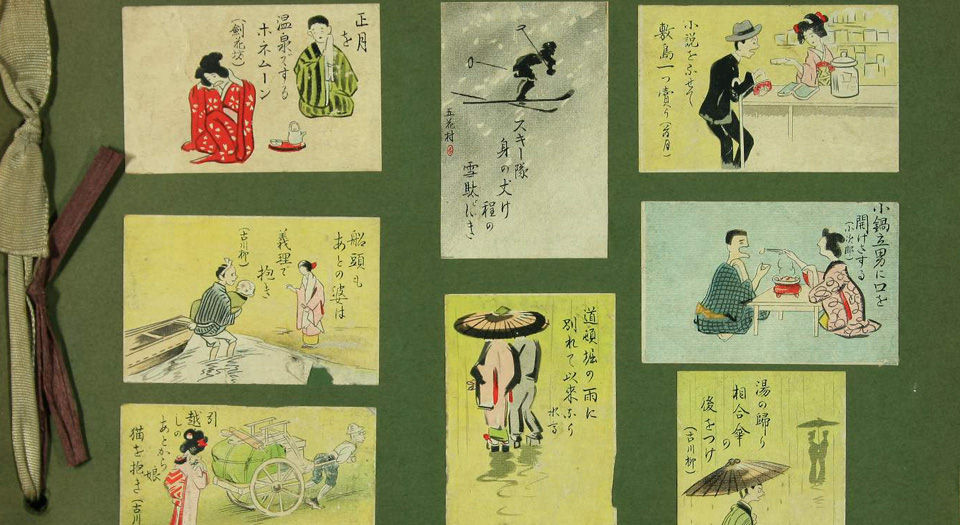 正月を
温泉でする
ホネムーン
(剣花坊)
スキー隊
身の丈け
程の
雪駄にき
五花村
小説をふせて
敷島一つ賣り
船頭も
あとの婆は
義理で
抱き
(古川柳)
小鍋立男に口を
開けさする
道頓堀の雨に
別れて以来なり
水府
引
越
しの
あとから
娘
猫を抱き
(古川
湯の歸り
相合傘
の
後をつけ
(古川柳)